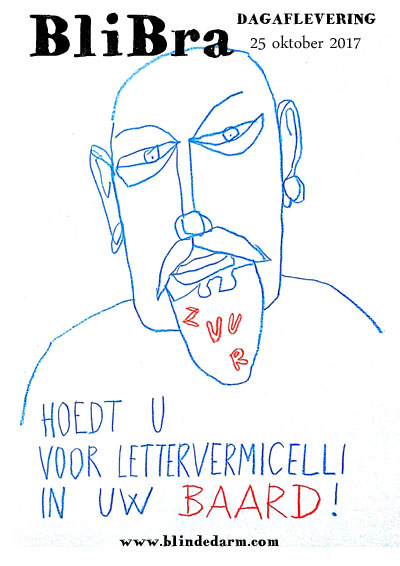 BliBra
DAGAFLEVERING
25 oktober 2017
ZUUR
HOEDT U
VOOR LETTERVERMICELLI
IN UW BAARD!
www.blindedarm.com